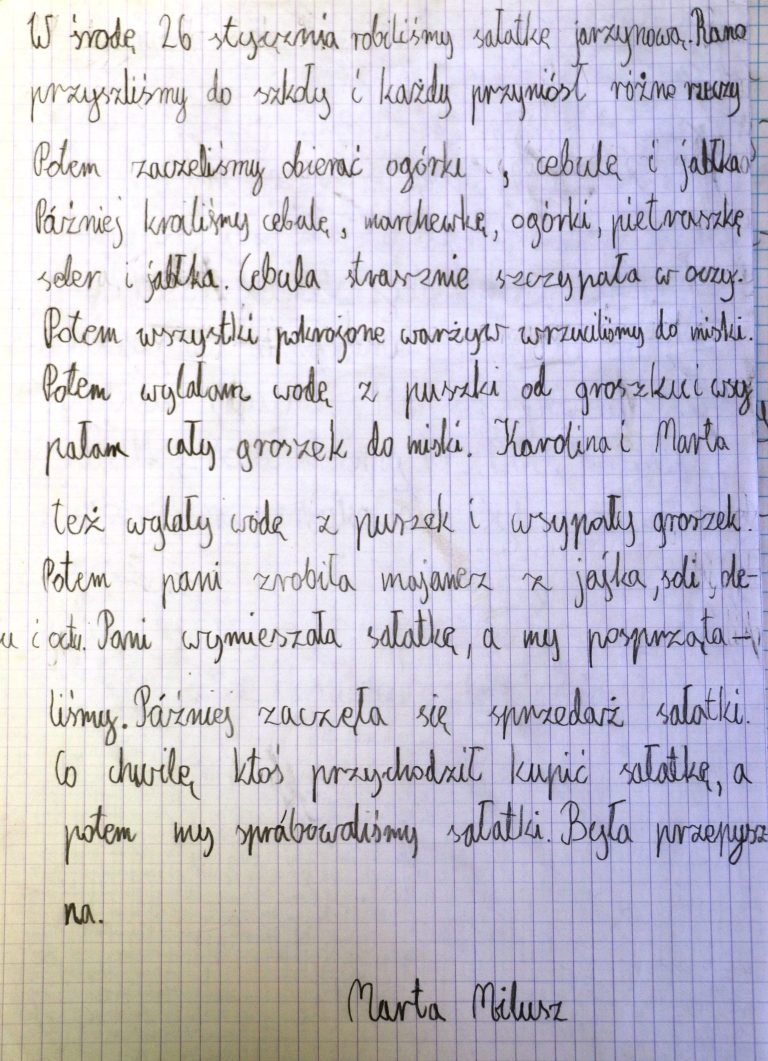 W środę 26 stycznia robiliśmy sałatkę jarzynową. Rano
przyszliśmy do szkoły i każdy przyniósł różne rzeczy
Potem zaczeliśmy obierać ogórki , cebulę i jabłka
Później kroliśmy cebulę, marchewkę, ogórki, pietruszkę
seler i jabłka. Cebula strasznie szczypała w oczy.
Potem wszystki pokrojone warzyw wrzuciliśmy do miski.
Potem wylałam wodę z puszki od groszku i wsy
pałam cały groszek do miski. Karolina i Marta
też wylały wodę z puszek i wsypały groszek.
Potem pani zrobiła majonez z jajka, soli, ole-
u i octu. Pani wymieszała sałatkę, a my posprząta-
liśmy. Później zaczęła się sprzedarz sałatki.
Co chwilę ktoś przychodził kupić sałatkę, a
potem my spróbowaliśmy sałatki. Była przepysz
na.
Marta Milusz